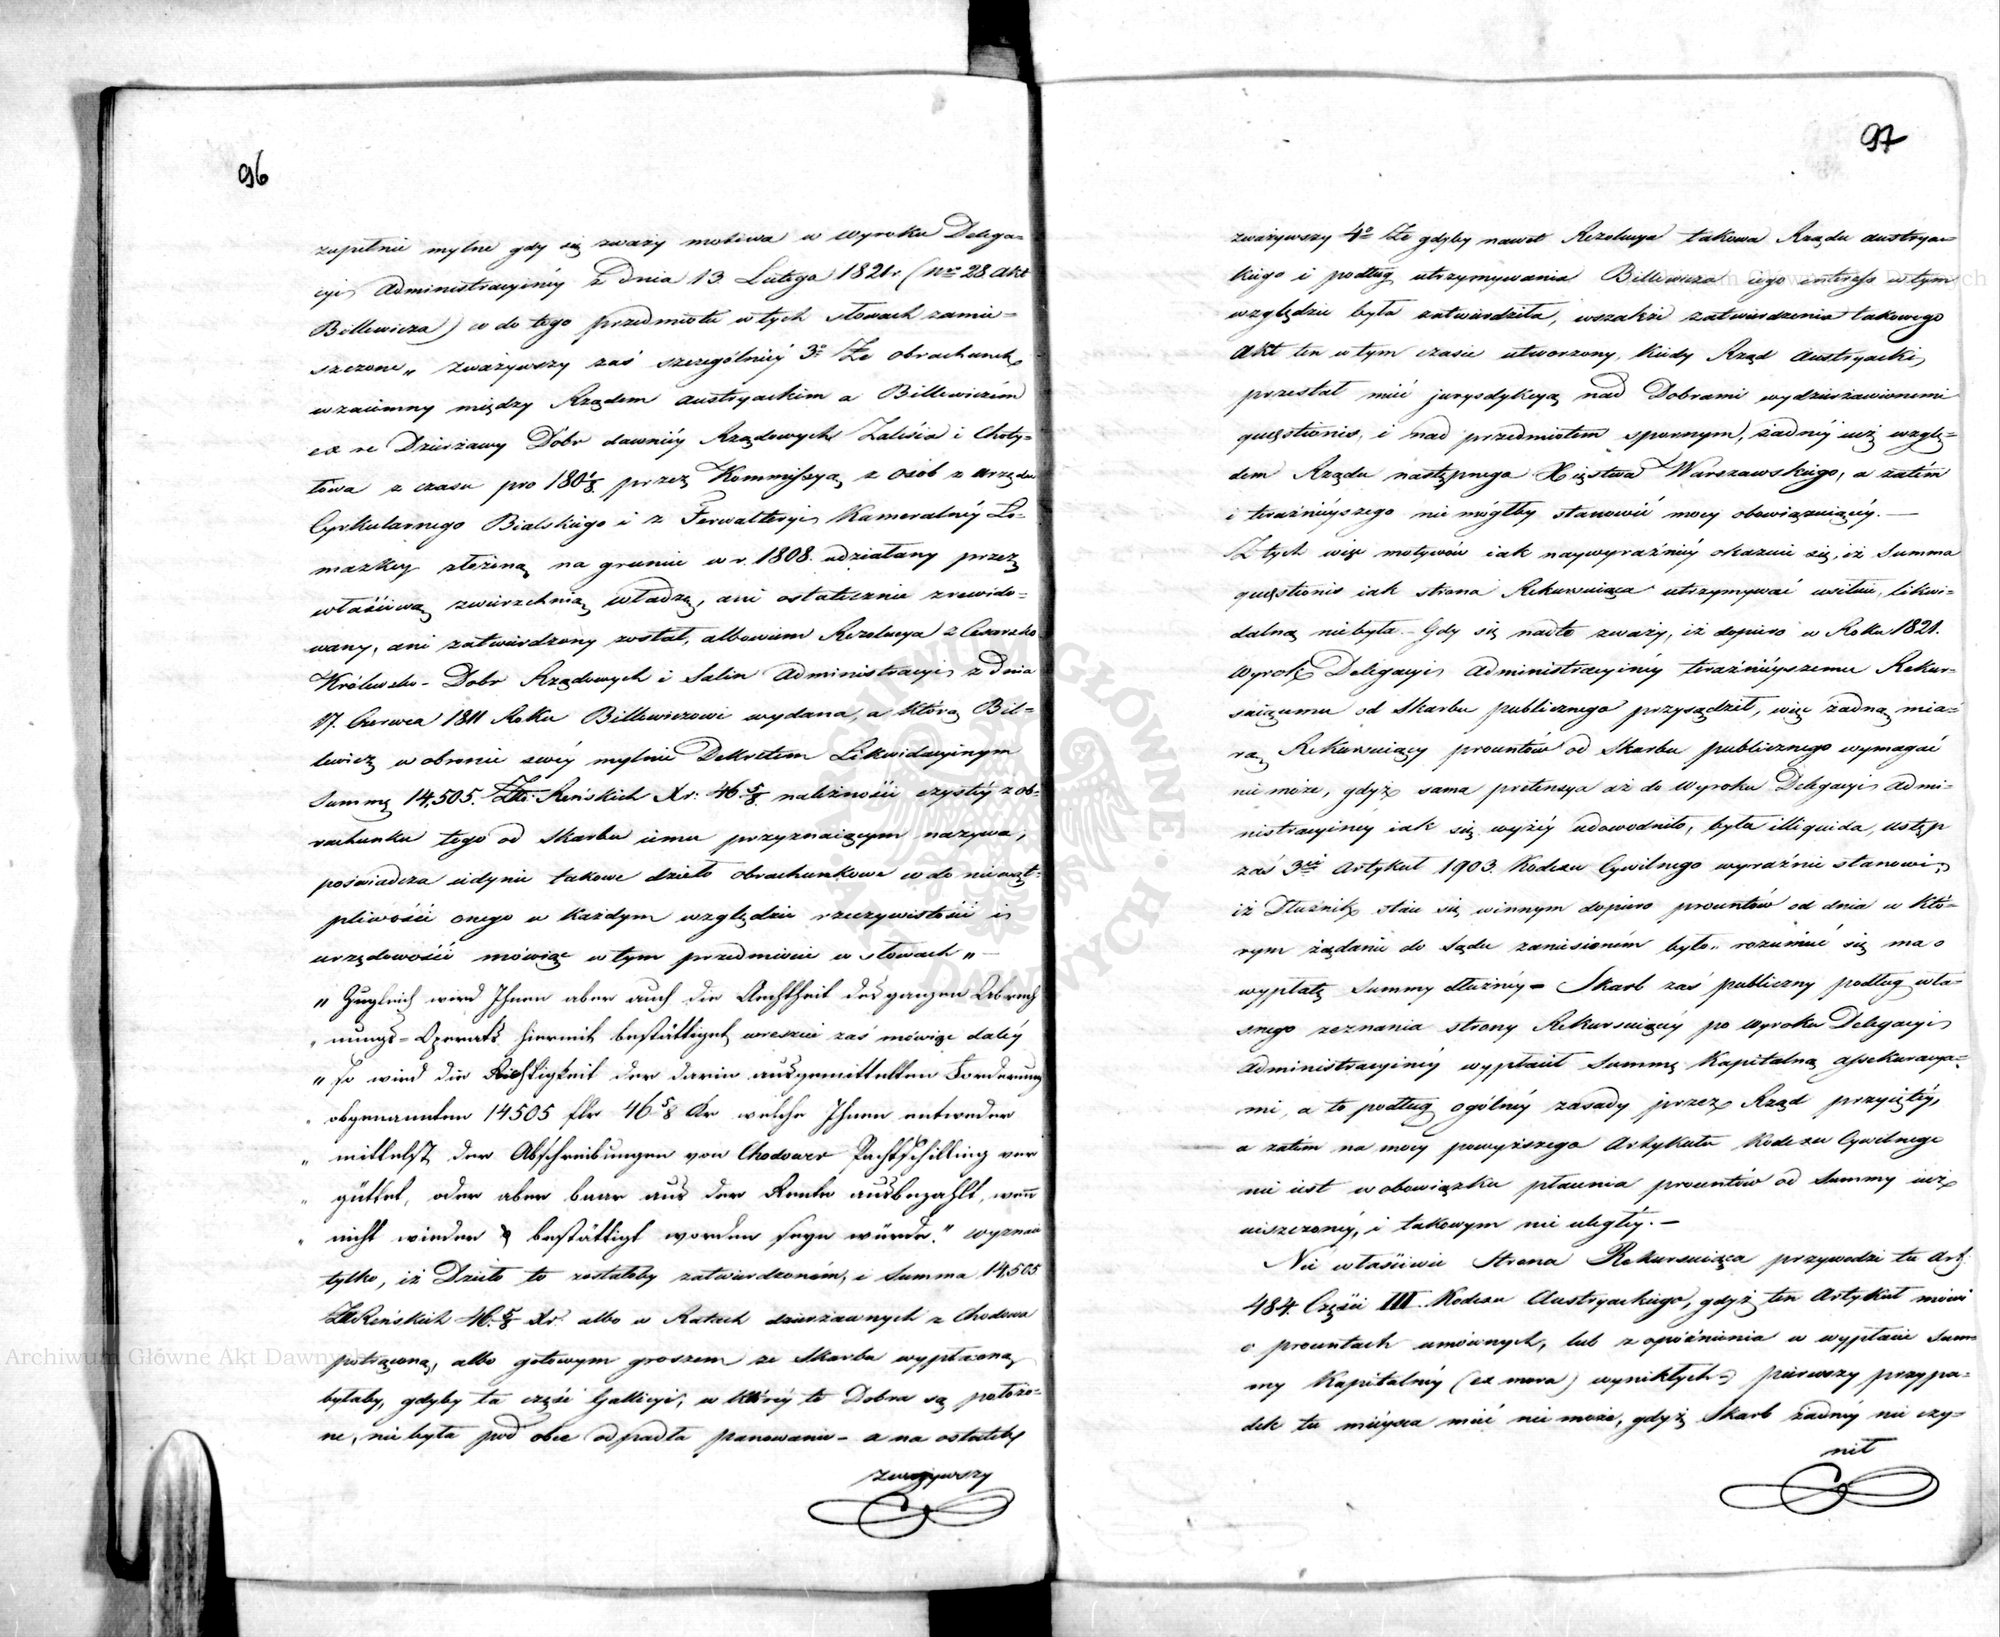 96
zupełnie mylne gdy się zważy motiwa w Wyroku Delega=
cyi Administracyiney z Dnia 13 Lutego 1821 r. (Nro 28 Akt
Billewicza) co do tego przedmiotu w tych słowach zamie=
szczone „ zważywszy zaś szczególniey 3o Że obrachunek
wzaiemny między Rządem Austryackim a Billewiczem
ex re Dzierżawy Dóbr dawniey Rządowych Zalesia i Choty=
łowa z czasu pro 180 7/8 przez Kommissyą z osób z Urzędu
Cyrkularnego Bialskiego i z Ferwalteryi Kameralney Ło=
mazkiey złożoną na gruncie w r. 1808. udziałany przez
właściwą zwierzchnią władzę, ani ostatecznie zrewido=
wany, ani zatwierdzony został, albowiem Rezolucya z Cesarsko
Królewsko- Dobr Rządowych i Salin Administracyi z Dnia
17. Czerwca 1811 Roku Billewiczowi wydana, a którą Bil=
lewicz w obronie swéy mylnie Dekretem Likwidacyinym
Summę 14,505. Złt: Reńskich Xr: 46 5/8 należności czystéy z ob=
rachunku tego od Skarbu iemu przyznaiącym nazywa,
poświadcza iedynie takowe dzieło obrachunkowe co do niewąt=
pliwości onego w każdym względzie rzeczywistości i
urzędowości mówiąc w tym przedmiocie w słowach „ —
„ Zugleich wird Ihnen aber auch die Aechtheit des ganzen Abrech
„ nungs=Operats hiermit bestättiget wreszcie zaś mówiąc daléy
„ so wird die Richtigkeit der darin ausgemittelten Forderung
„ obgenannten 14505 flr 46 5/8 Xr welche Ihnen entweder
„ mittelst der Abschreibungen von Chodower Pachtschilling ver
„ güttet, oder aber baar aus der Rente ausbezahlt, wenn
„ nicht wieder bestättigt worden seyn würde." wyznaie
tylko, iż Dzieło to zostałoby zatwierdzoném, i Summa 14,505
Zł Reńskich 46. 5/8 Xr. albo w Ratach dzierżawnych z Chodowa
potrąconą, albo gotowym groszem ze Skarbu wypłaconą
byłaby, gdyby ta część Gallicyi, w któréy te Dobra są położo=
ne, nie była pod obce odpadła panowanie – a na ostatek
zważywszy
97
zważywszy 4o Że gdyby nawet Rezolucya takowa Rządu Austryac=
kiego i podług utrzymywania Billewicza iego interess w tym
względzie była zatwierdziła, wszakże zatwierdzenia takowego
Akt ten w tym czasie utworzony, kiedy Rząd Austryacki
przestał mieć jurysdykcyą nad Dobrami wydzierżawionemi
quęstionis, i nad przedmiotem spornym, żadnéy iuż wzglę=
dem Rządu następnego Xięstwa Warszawskiego, a zatem
i teraźnieyszego nie mógłby stanowić mocy obowiązuiącéy. —
Z tych więc motywów iak naywyraźniéy okazuie się, iż Summa
quęstionis iak strona Rekursuiąca utrzymywać usiłuie, likwi=
dalną nie była.— Gdy się nadto zważy, iż dopiero w Roku 1821.
Wyrok Delegacyi Administracyiney teraźnieyszemu Rekur=
suiącemu od Skarbu publicznego przysądził, więc żadną mia=
rą Rekursuiący procentów od Skarbu publicznego wymagać
nie może, gdyż sama pretensya aż do Wyroku Delegacyi Admi=
nistracyiney iak się wyżéy udowodniło, była illiquida, ustęp
zaś 3ci Artykuł 1903. Kodexu Cywilnego wyraźnie stanowi,
iż Dłużnik staie się winnym dopiero procentów od dnia w któ=
rym żądanie do Sądu zaniesioném było„ rozumieć się ma o
wypłatę Summy dłużnéy – Skarb zaś publiczny podług wła=
snego zeznania strony Rekursuiącéy po Wyroku Delegacyi
Administracyinéy wypłacił Summę Kapitalną assekuracya=
mi, a to podług ogólnéy zasady przez Rząd przyiętéy,
a zatem na mocy powyższego Artykułu Kodexu Cywilnego
nie iest w obowiązku płacenia procentów od Summy iuż
uiszczonéy, i takowym nie uległéy. —
Nie właściwie Strona Rekursuiąca przywodzi tu Art:
484. Części III. Kodexu Austryackiego, gdyż ten Artykuł mówi
o procentach umównych, lub z opóźnienia w wypłacie Sum=
my Kapitalnéy (ex mora) wynikłych – pierwszy przypa=
dek tu mieysca mieć nie może, gdyż Skarb żadnéy nie czy=
nił